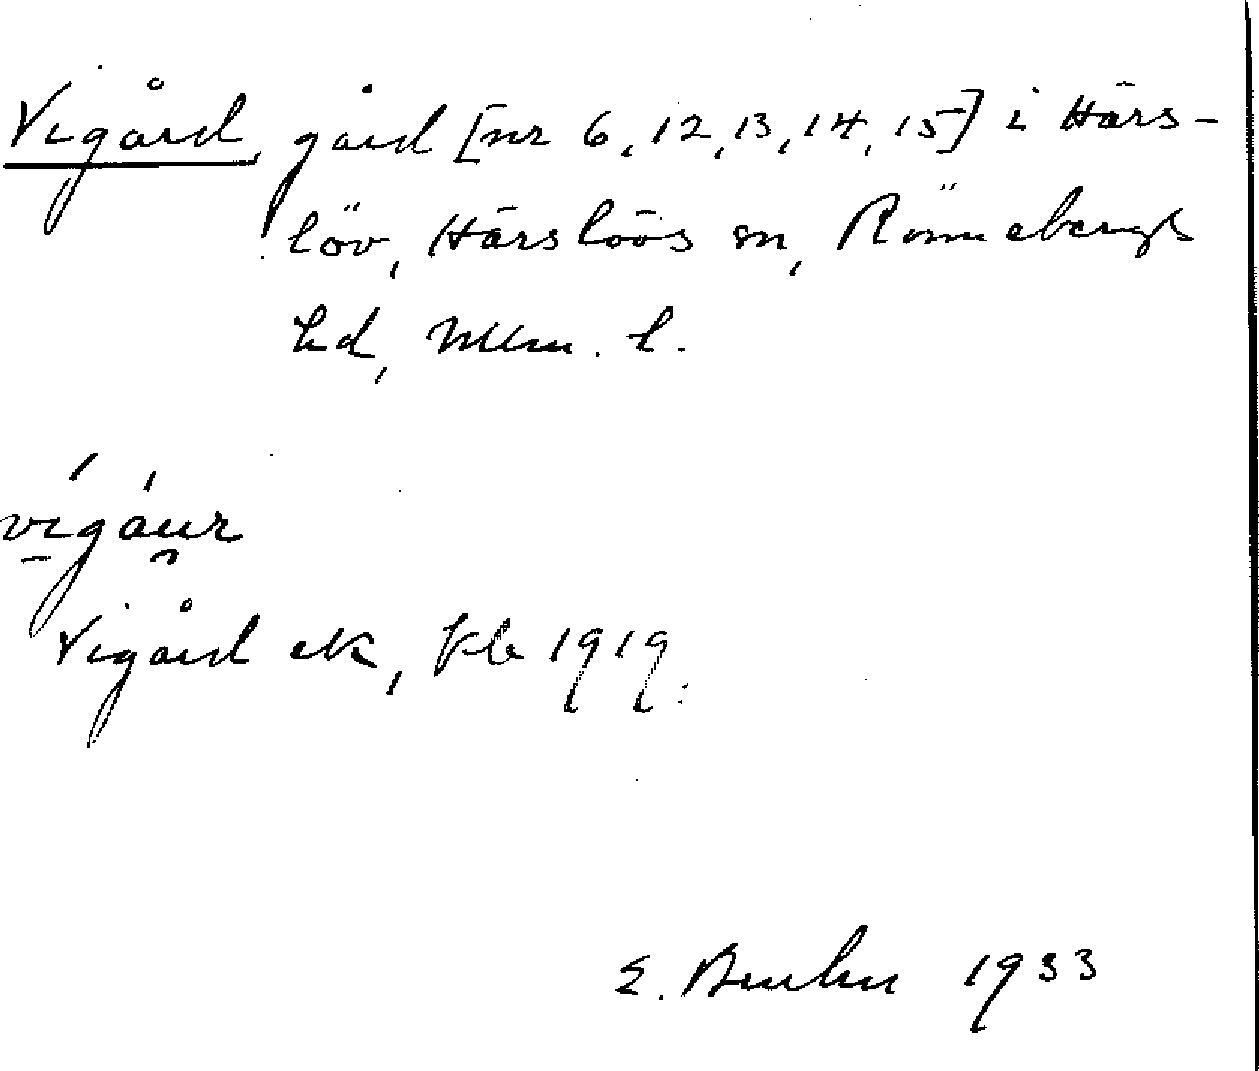 Vigård, gård [nr 6, 12, 13, 14, 15] i Härs-
löv, Härslövs sn, Rönnebergs
hd, Mlm. l.
vígáur
Vigård ek, kb 1919.
E. 1933